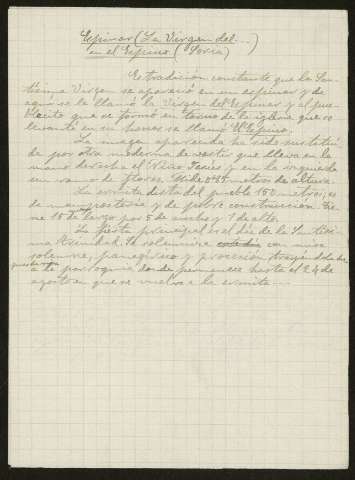 Espinar (La Virgen del...)
en el Espino (Soria)
Es tradición constante que la San-
tísima Virgen se apareció en un espinar y de
aquí se la llamó la Virgen del Espinar y al pue-
blecito que se formó en torno de la iglesia que se
levantó en su honor se llamó El Espino.
La imagen aparecida ha sido sustituí-
da por otra moderna de vestir que lleva en la
mano derecha el Niño Jesús y en la izquierda
un ramo de flores. Mide 0'85 metros de altura.
La ermita dista del pueblo 150 metros, es
de mampostería y de pobre construcción. Tie-
ne 15 de largo por 5 de ancho y 7 de alto.
La fiesta principal es el día de la Santísi-
ma Trinidad. Se solemniza con misa
solemne, panegírico y procesión trayéndola des-
a la parroquia donde permanece hasta el 24 de
agosto en que se vuelve a la ermita...